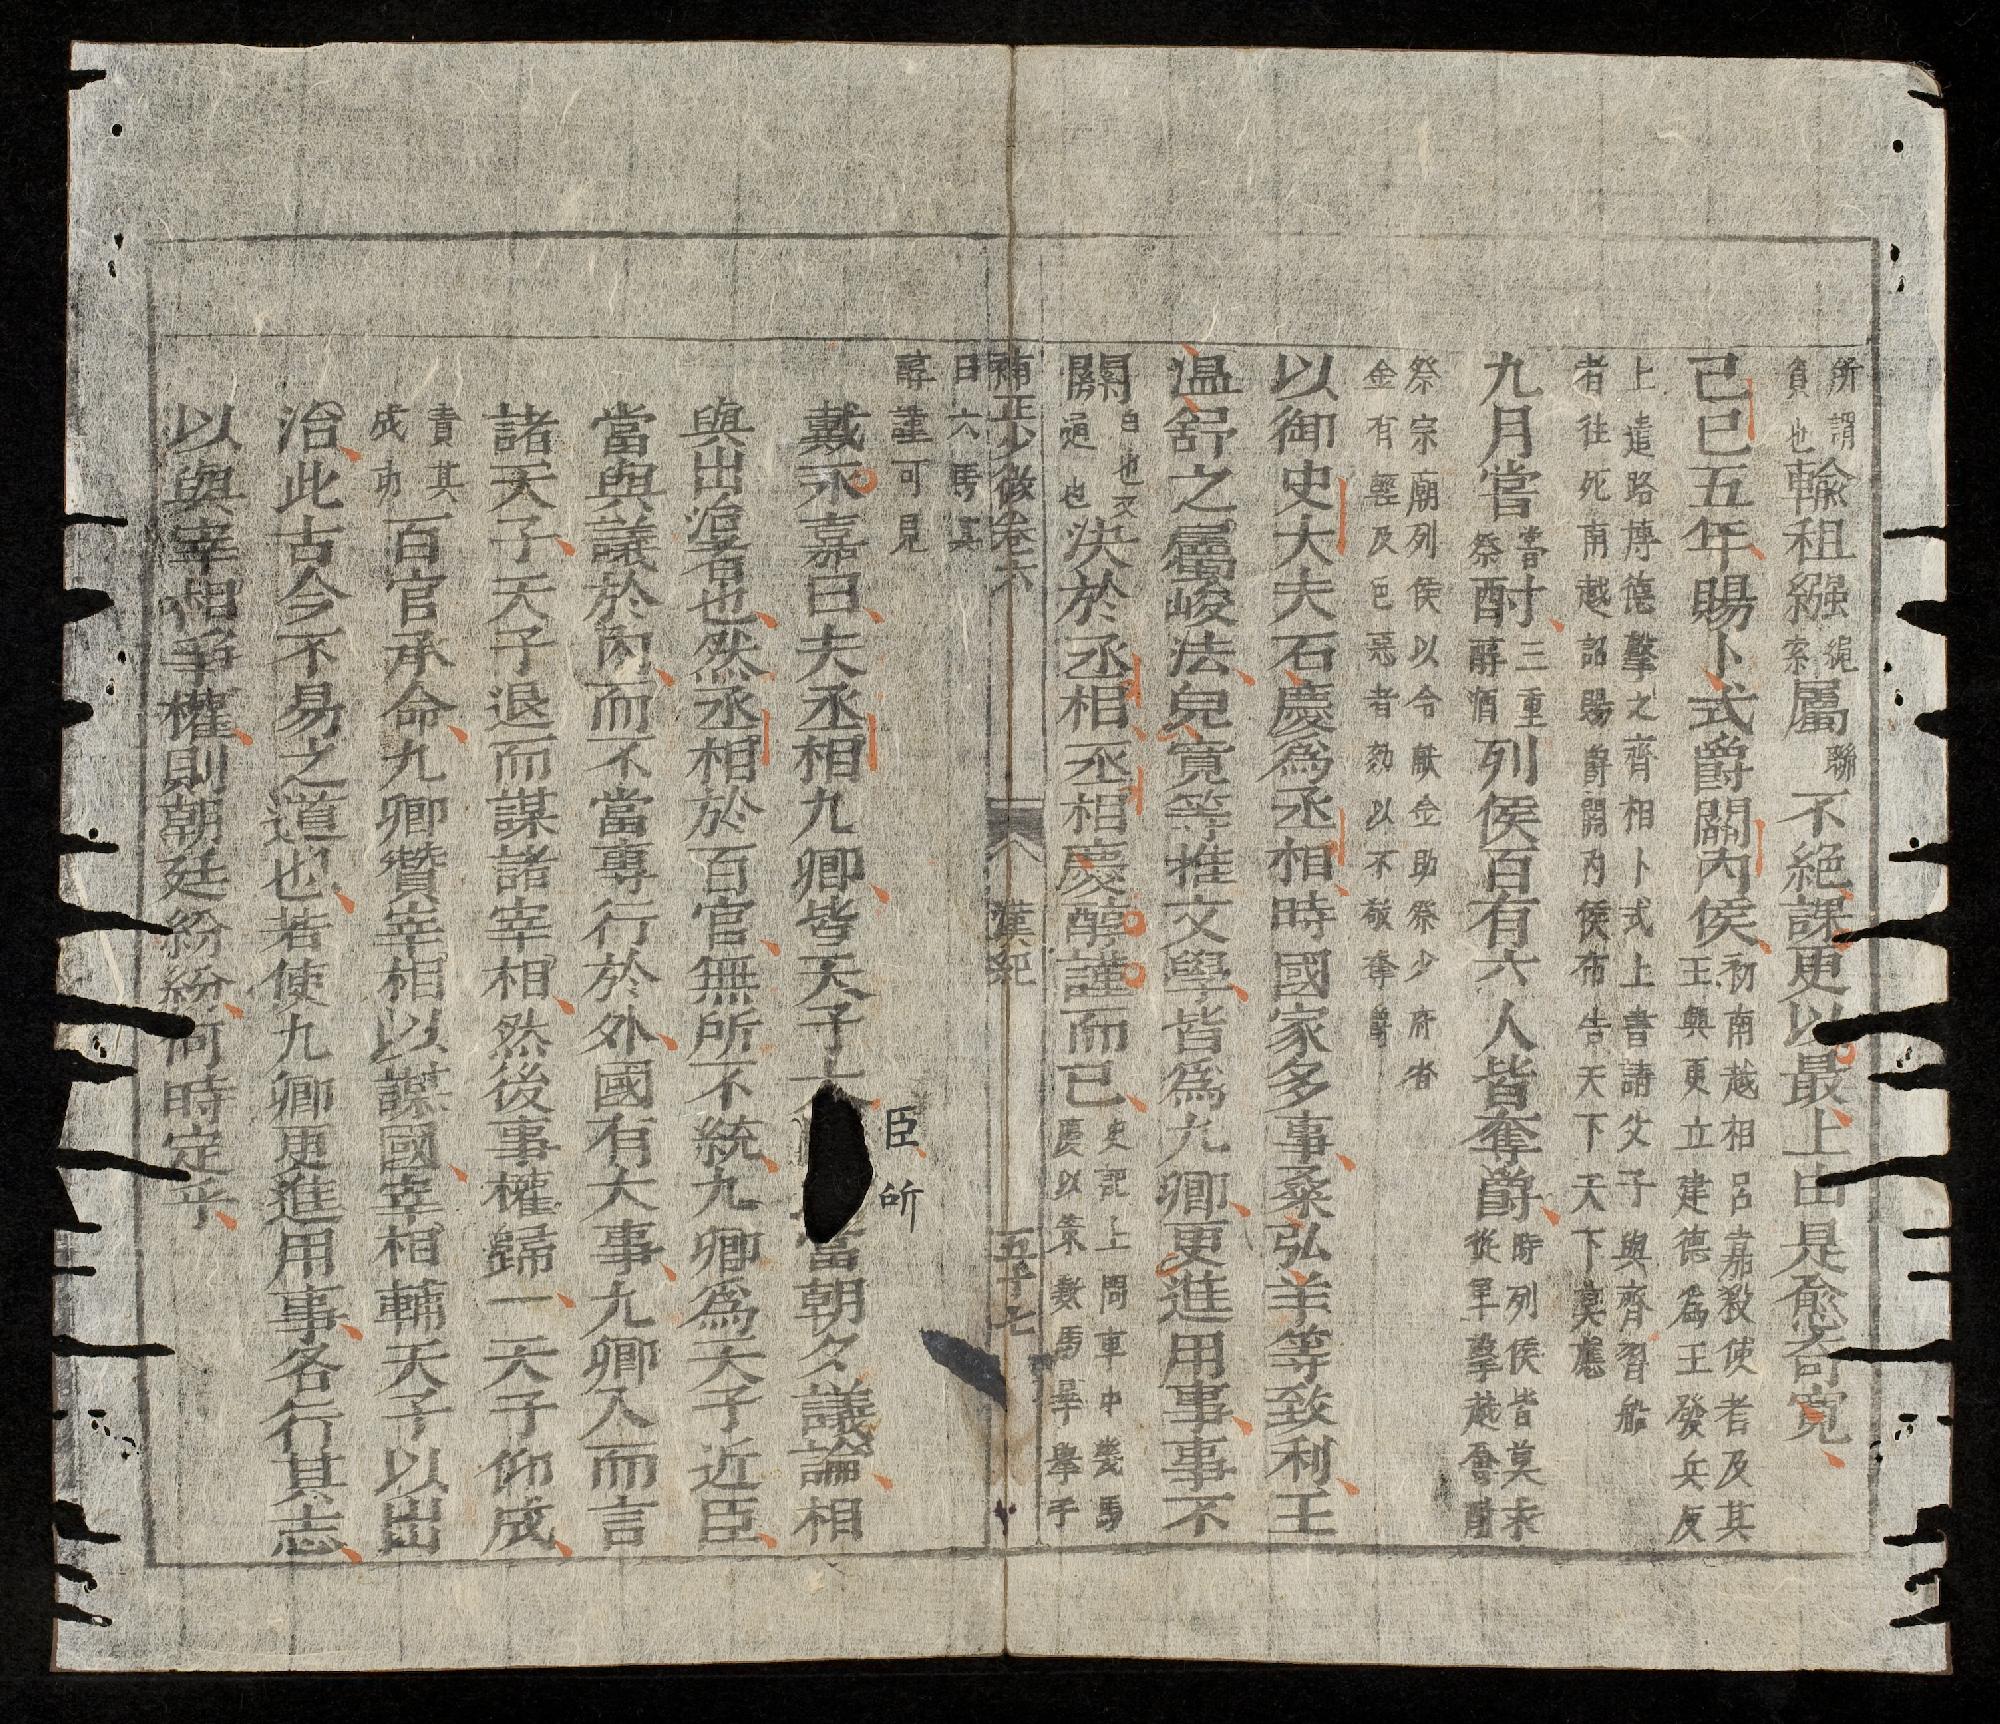 所謂負也輸租繦强繩索屬聯不絶課更以最上由是愈奇寬
己巳五年賜卜式爵關內侯初南越相呂嘉殺使者及其王興更立建德爲王發兵反
上遣路博德擊之齊相卜式上書請父子與齊習船
者往死南越詔賜爵關內侯布告天下天下莫應
九月嘗嘗祭酎三重醇酒列侯百有六人皆奪爵時列侯皆莫求從軍擊越會酎
祭宗廟列侯以令献金助祭少府省
金有輕及色惡者劾以不敬奪爵
以御史大夫石慶爲丞相時國家多事桑弘羊等致利王
温舒之屬峻法兒寬等推文學皆爲九卿更進用事事不
關白也又通也決於丞相丞相慶醇謹而已史記上問車中幾馬慶以策數馬畢擧手
補正少微卷六 漢紀 五十七
曰六馬其
醇謹可見
戴永嘉曰夫丞相九卿皆天子大臣所當朝夕議論相
與出治者也然丞相於百官無所不統九卿爲天子近臣
當與議於內而不當專行於外國有大事九卿入而言
諸天子天子退而謀諸宰相然後事權歸一天子仰成
責其成功百官承命九卿贊宰相以謀國宰相輔天子以出
治此古今不易之道也若使九卿更進用事各行其志
以與宰相爭權則朝廷紛紛何時定乎